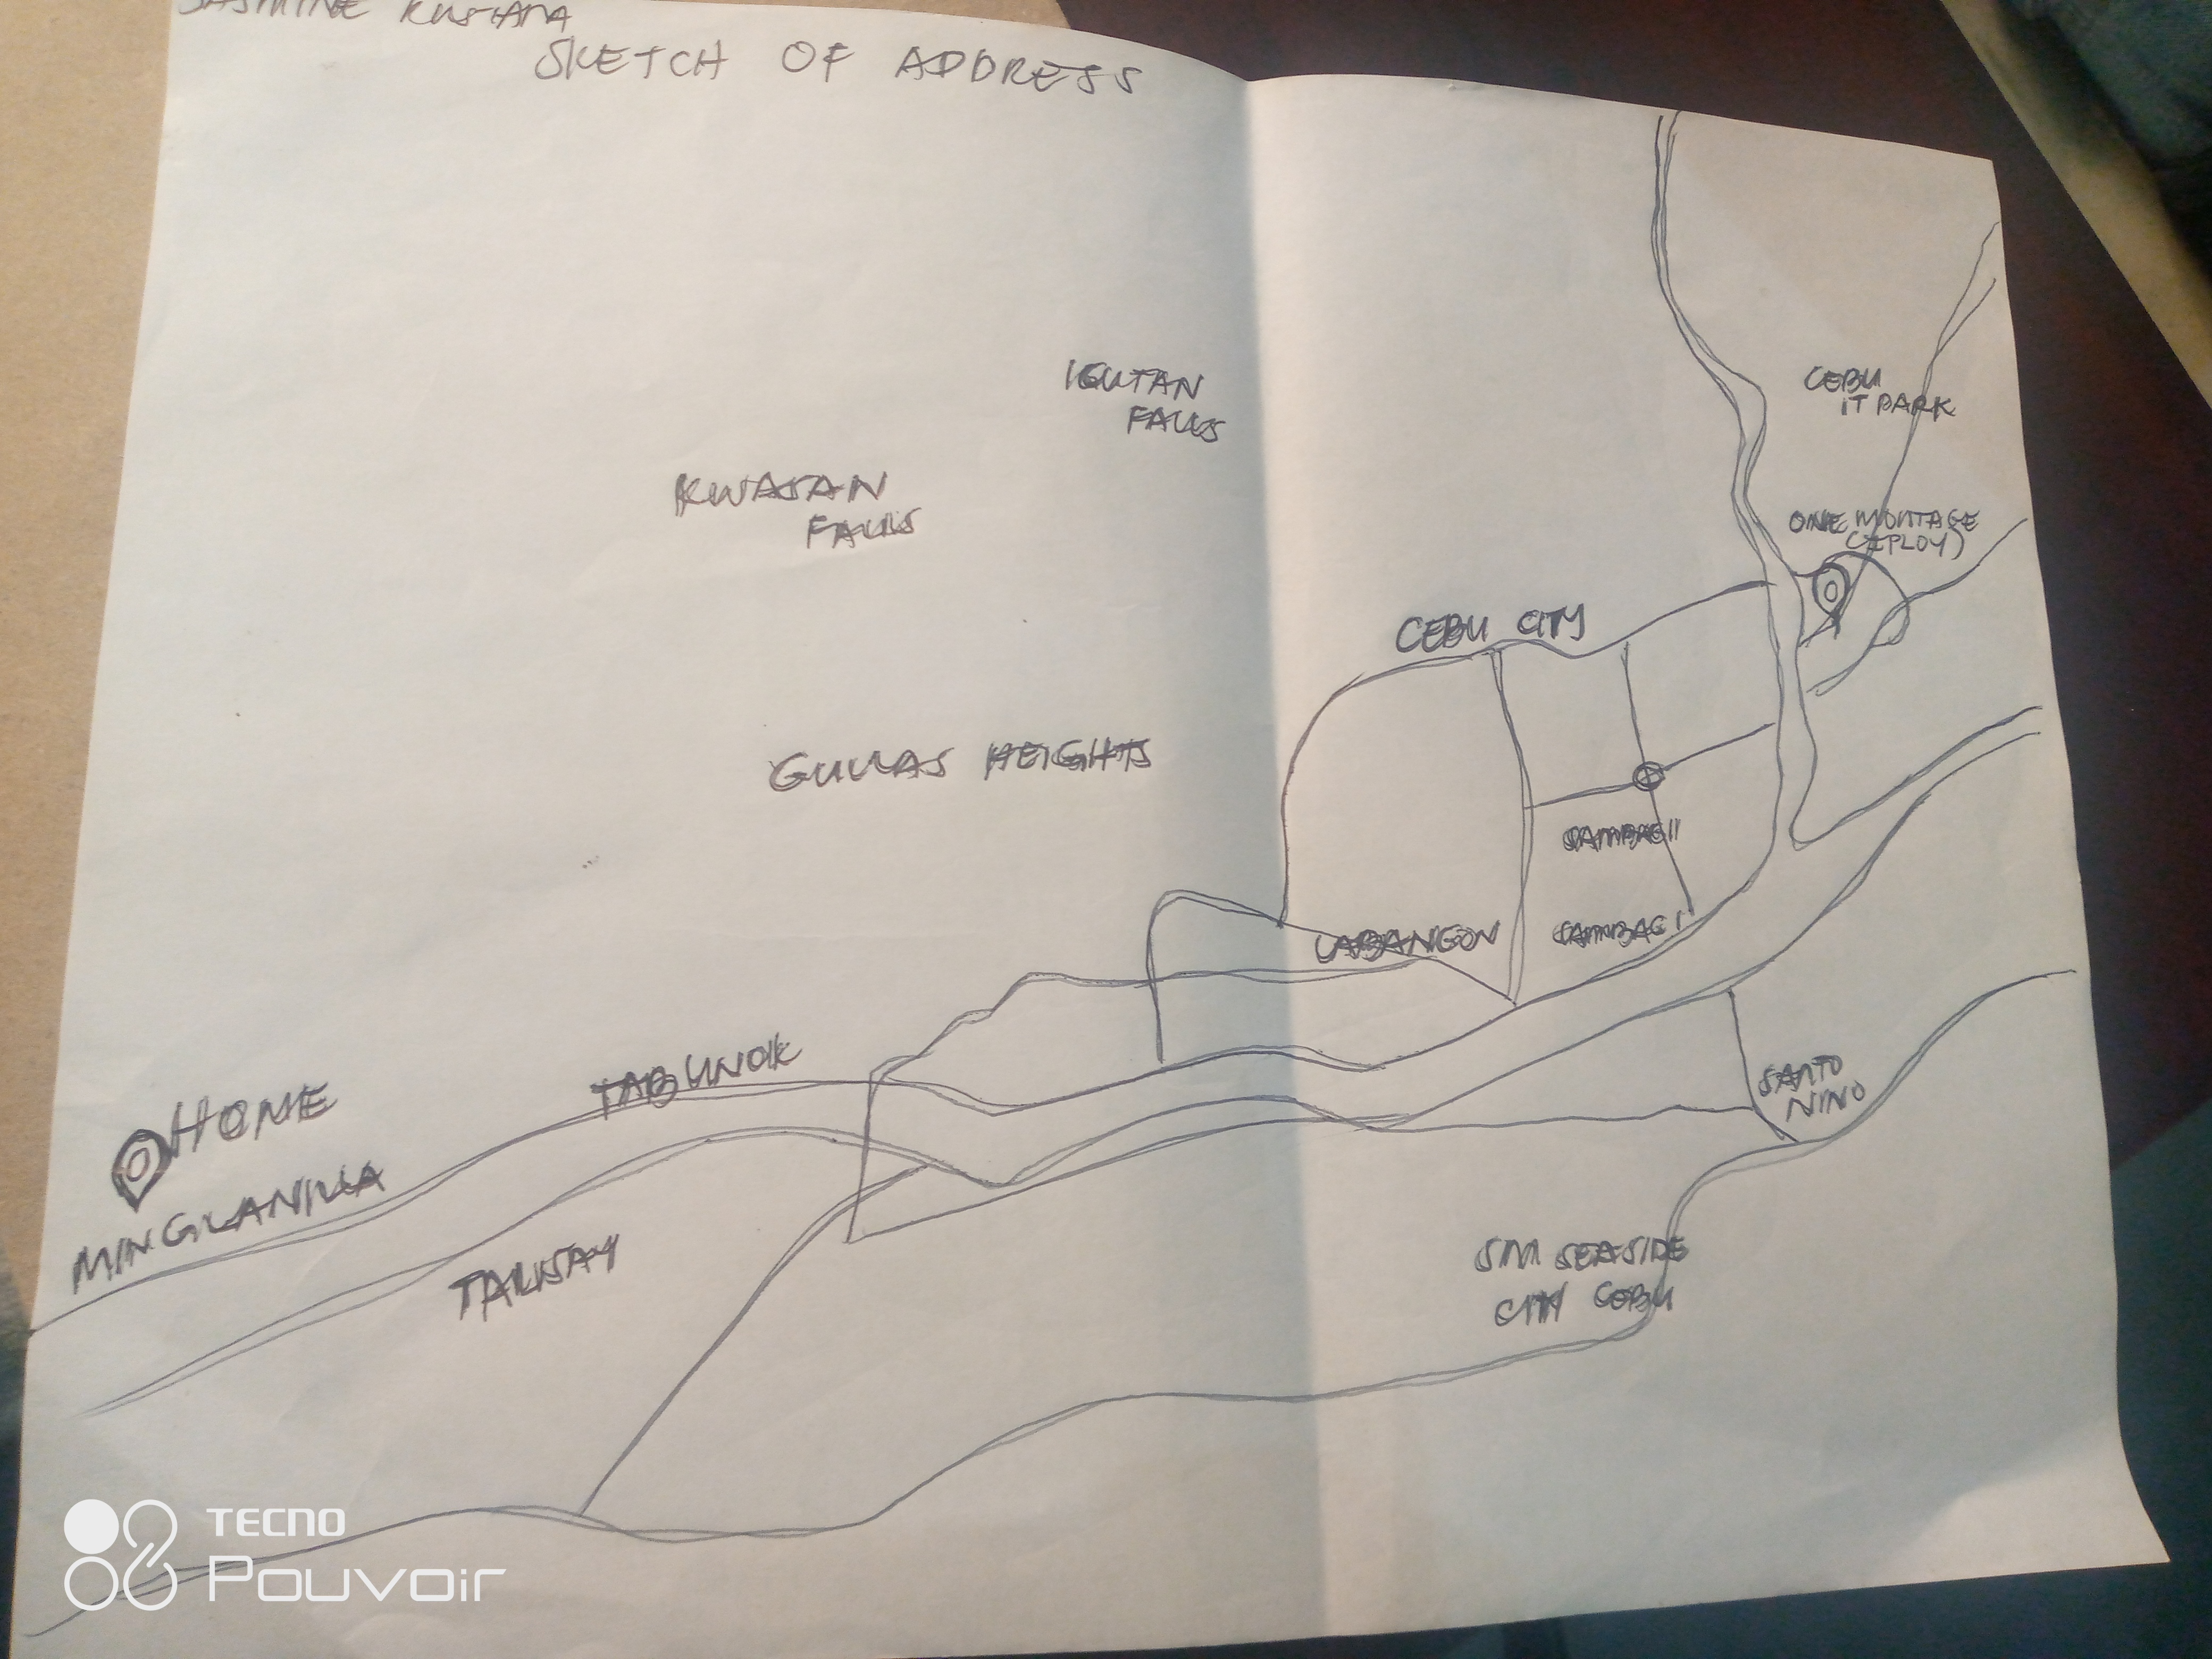 JASMINE
SKETCH OF ADDRESS
IGUTAN
FALLS
CEBU
IT PARK
KWASAN
FALLS
ONE MONTAGE
CEBU CITY
GULLAS HEIGHTS
SAMBAG II
LABANGON
SAMBAG I
TABUNOK
SANTO
NINO
HOME
MINGLANILLA
TALISAY
SM SEASIDE
CITY CEBU
TECNO
POUVOIR